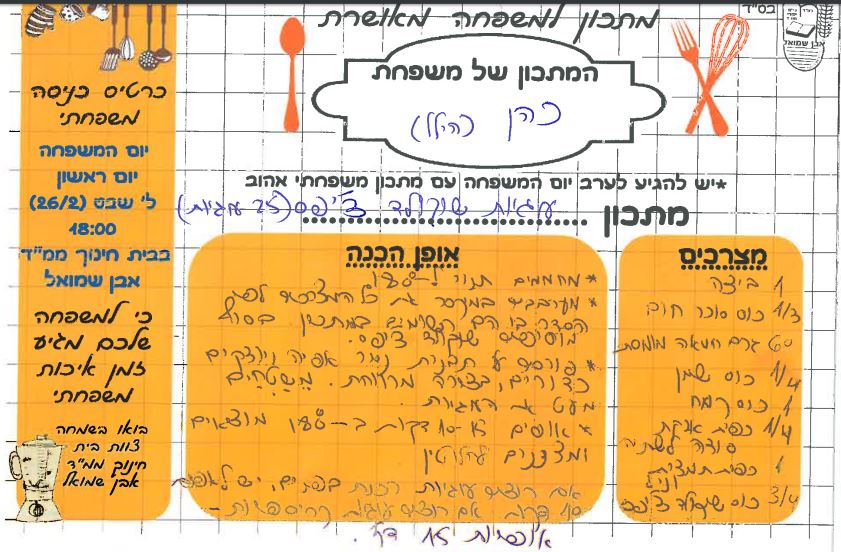 בס"ד
אבן שמואל
מתכון למשפחה מאושרת
המתכון של משפחת
כהן (הילל)
*יש להגיע לערב יום המשפחה עם מתכון משפחתי אהוב
מתכון עוגיות שוקולד צ'יפס (25 עוגיות)
מצרכים
1 ביצה
1/3 כוס סוכר חום
60 גרם חמאה מומסת
1/4 כוס שמן
1 כוס קמח
1/4 כפית אבקת
סודה לשתיה
1 כפית תמצית
וניל
3/4 כוס שוקולד צ'יפס
אופן הכנה
* מחממים תנור ל-180
* מערבבים במיקסר את כל המצרכים לפי
הסדר בו הם רשומים במתכון בסוף
מוסיפים שוקולד צ'יפס.
* פורסים על תבנית נייר אפיה ויוצקים
כדורים, בצורה מרווחת. מְשַטְחִים
מעט את העוגיות.
* אופים 10-15 דקות ב-180 מוצאים
ומצננים לחלוטין
אם רוצים עוגיות רכות בפנים, יש לאפות
10 דקות אם רוצים עוגיות קריספיות -
אופים 15 דק'.
כרטיס כניסה
משפחתי
יום המשפחה
יום ראשון
ל' שבט (26/2)
18:00
בבית חינוך ממ"ד
אבן שמואל
כי למשפחה
שלכם מגיע
זמן איכות
משפחתי
בואו בשמחה
צוות בית
חינוך ממ"ד
אבן שמואל